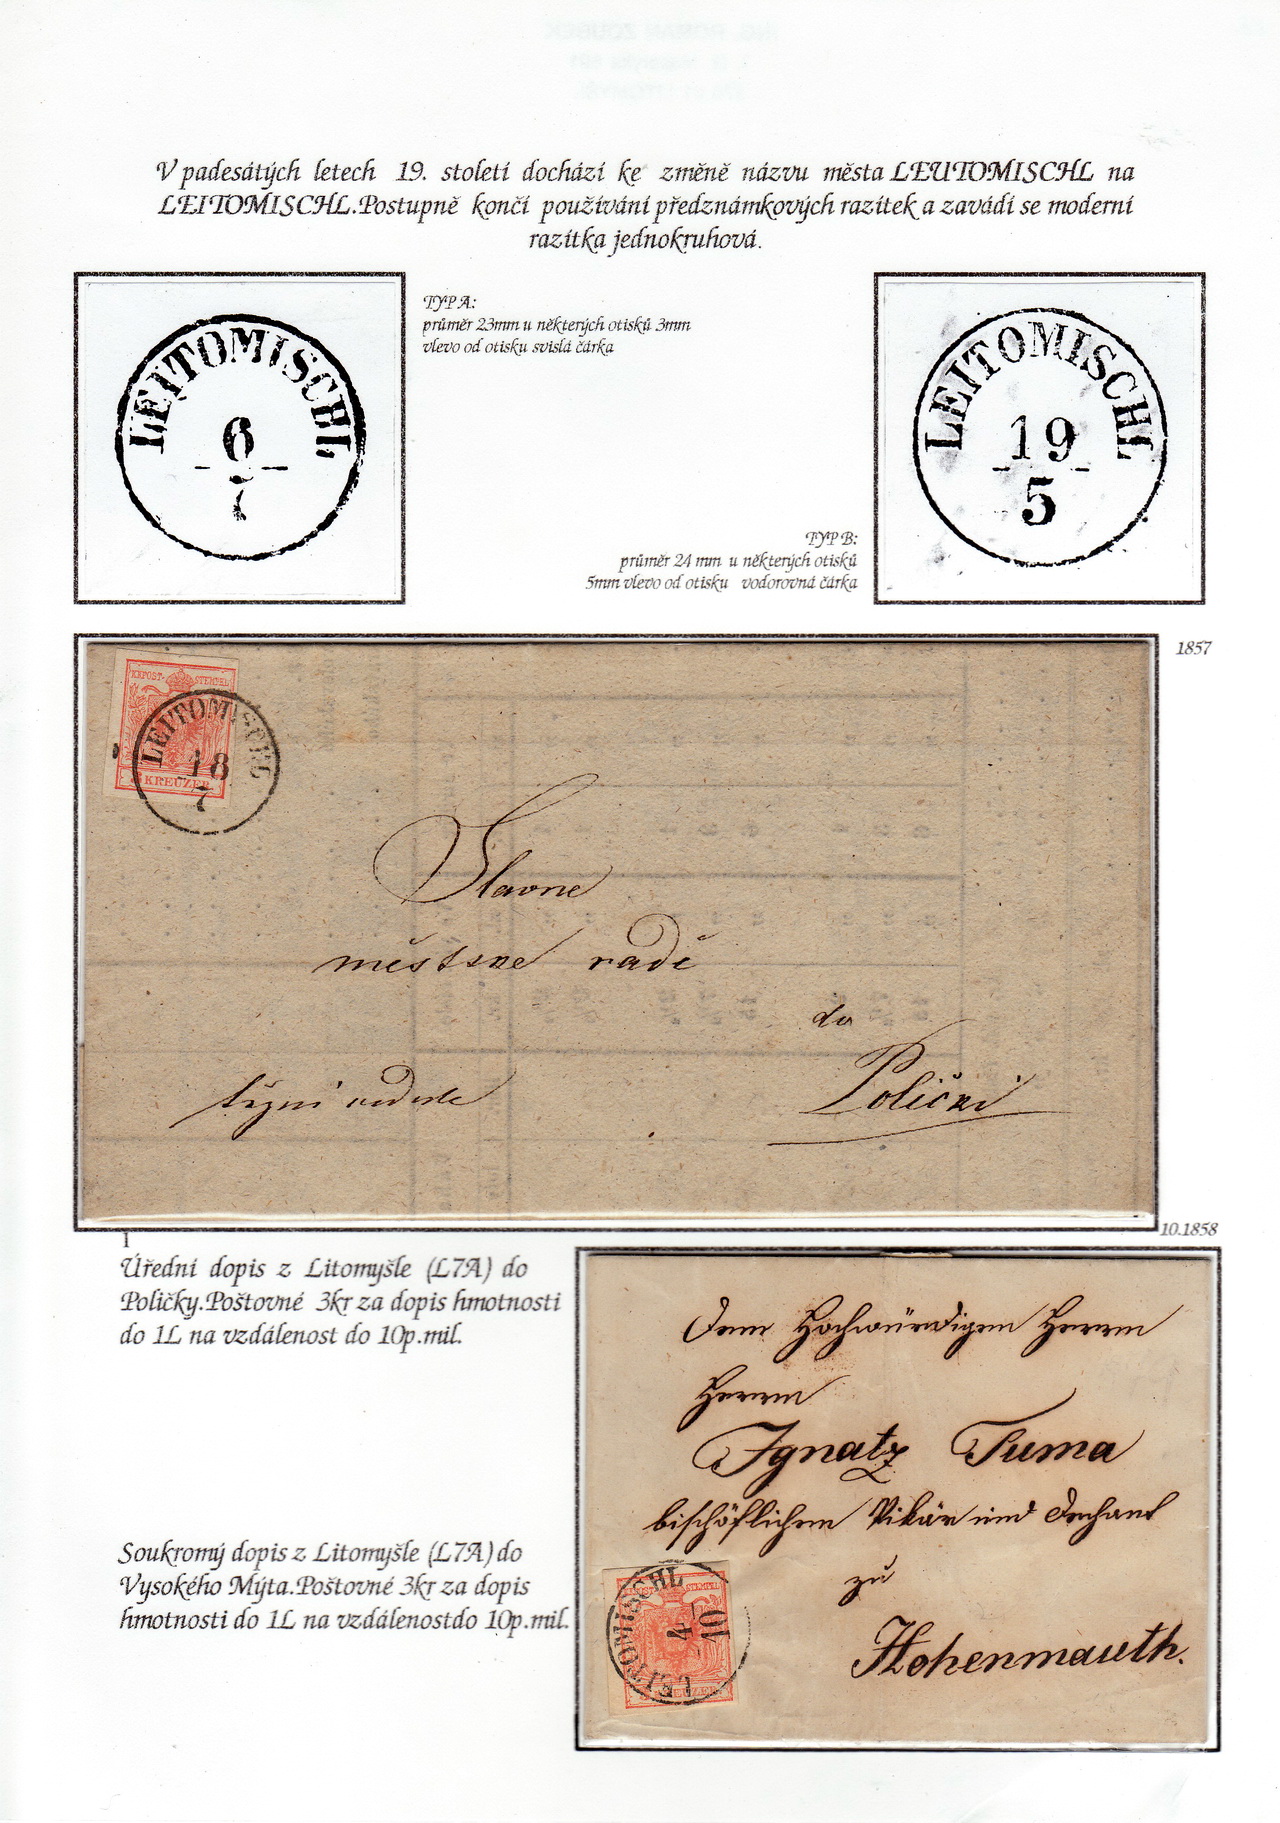 V padesátých letech 19. století dochází ke změně názvu města LEUTOMISCHL na
LEITOMISCHL.Postupně končí používání předznámkových razítek a zavádí se moderní
razítka jednokruhová.
LEITOMISCHL
6
7
TYP A:
průměr 23mm u některých otisků 3mm
vlevo od otisku svislá čárka
LEITOMISCHL
19
5
TYP B:
průměr 24 mm u některých otisků
5mm vlevo od otisku vodorovná čárka
1857
KKPOST-STEMPEL
KREUZER
LEITOMISCHL
18
7
Slavne
městske radě
do
Poličzi
10.1858
1
Úřední dopis z Litomyšle (L7A) do
Poličky.Poštovné 3kr za dopis hmotnosti
do 1L na vzdálenost do 10p.mil.
Dem Hochwürdigen Herrn
Herrn
Ignatz Tuma
bischöflichen Vikär und Dechant
zu
Hohenmauth.
LEITOMISCHL
4
10
KREUZER
Soukromý dopis z Litomyšle (L7A) do
Vysokého Mýta.Poštovné 3kr za dopis
hmotnosti do 1L na vzdálenostdo 10p.mil.